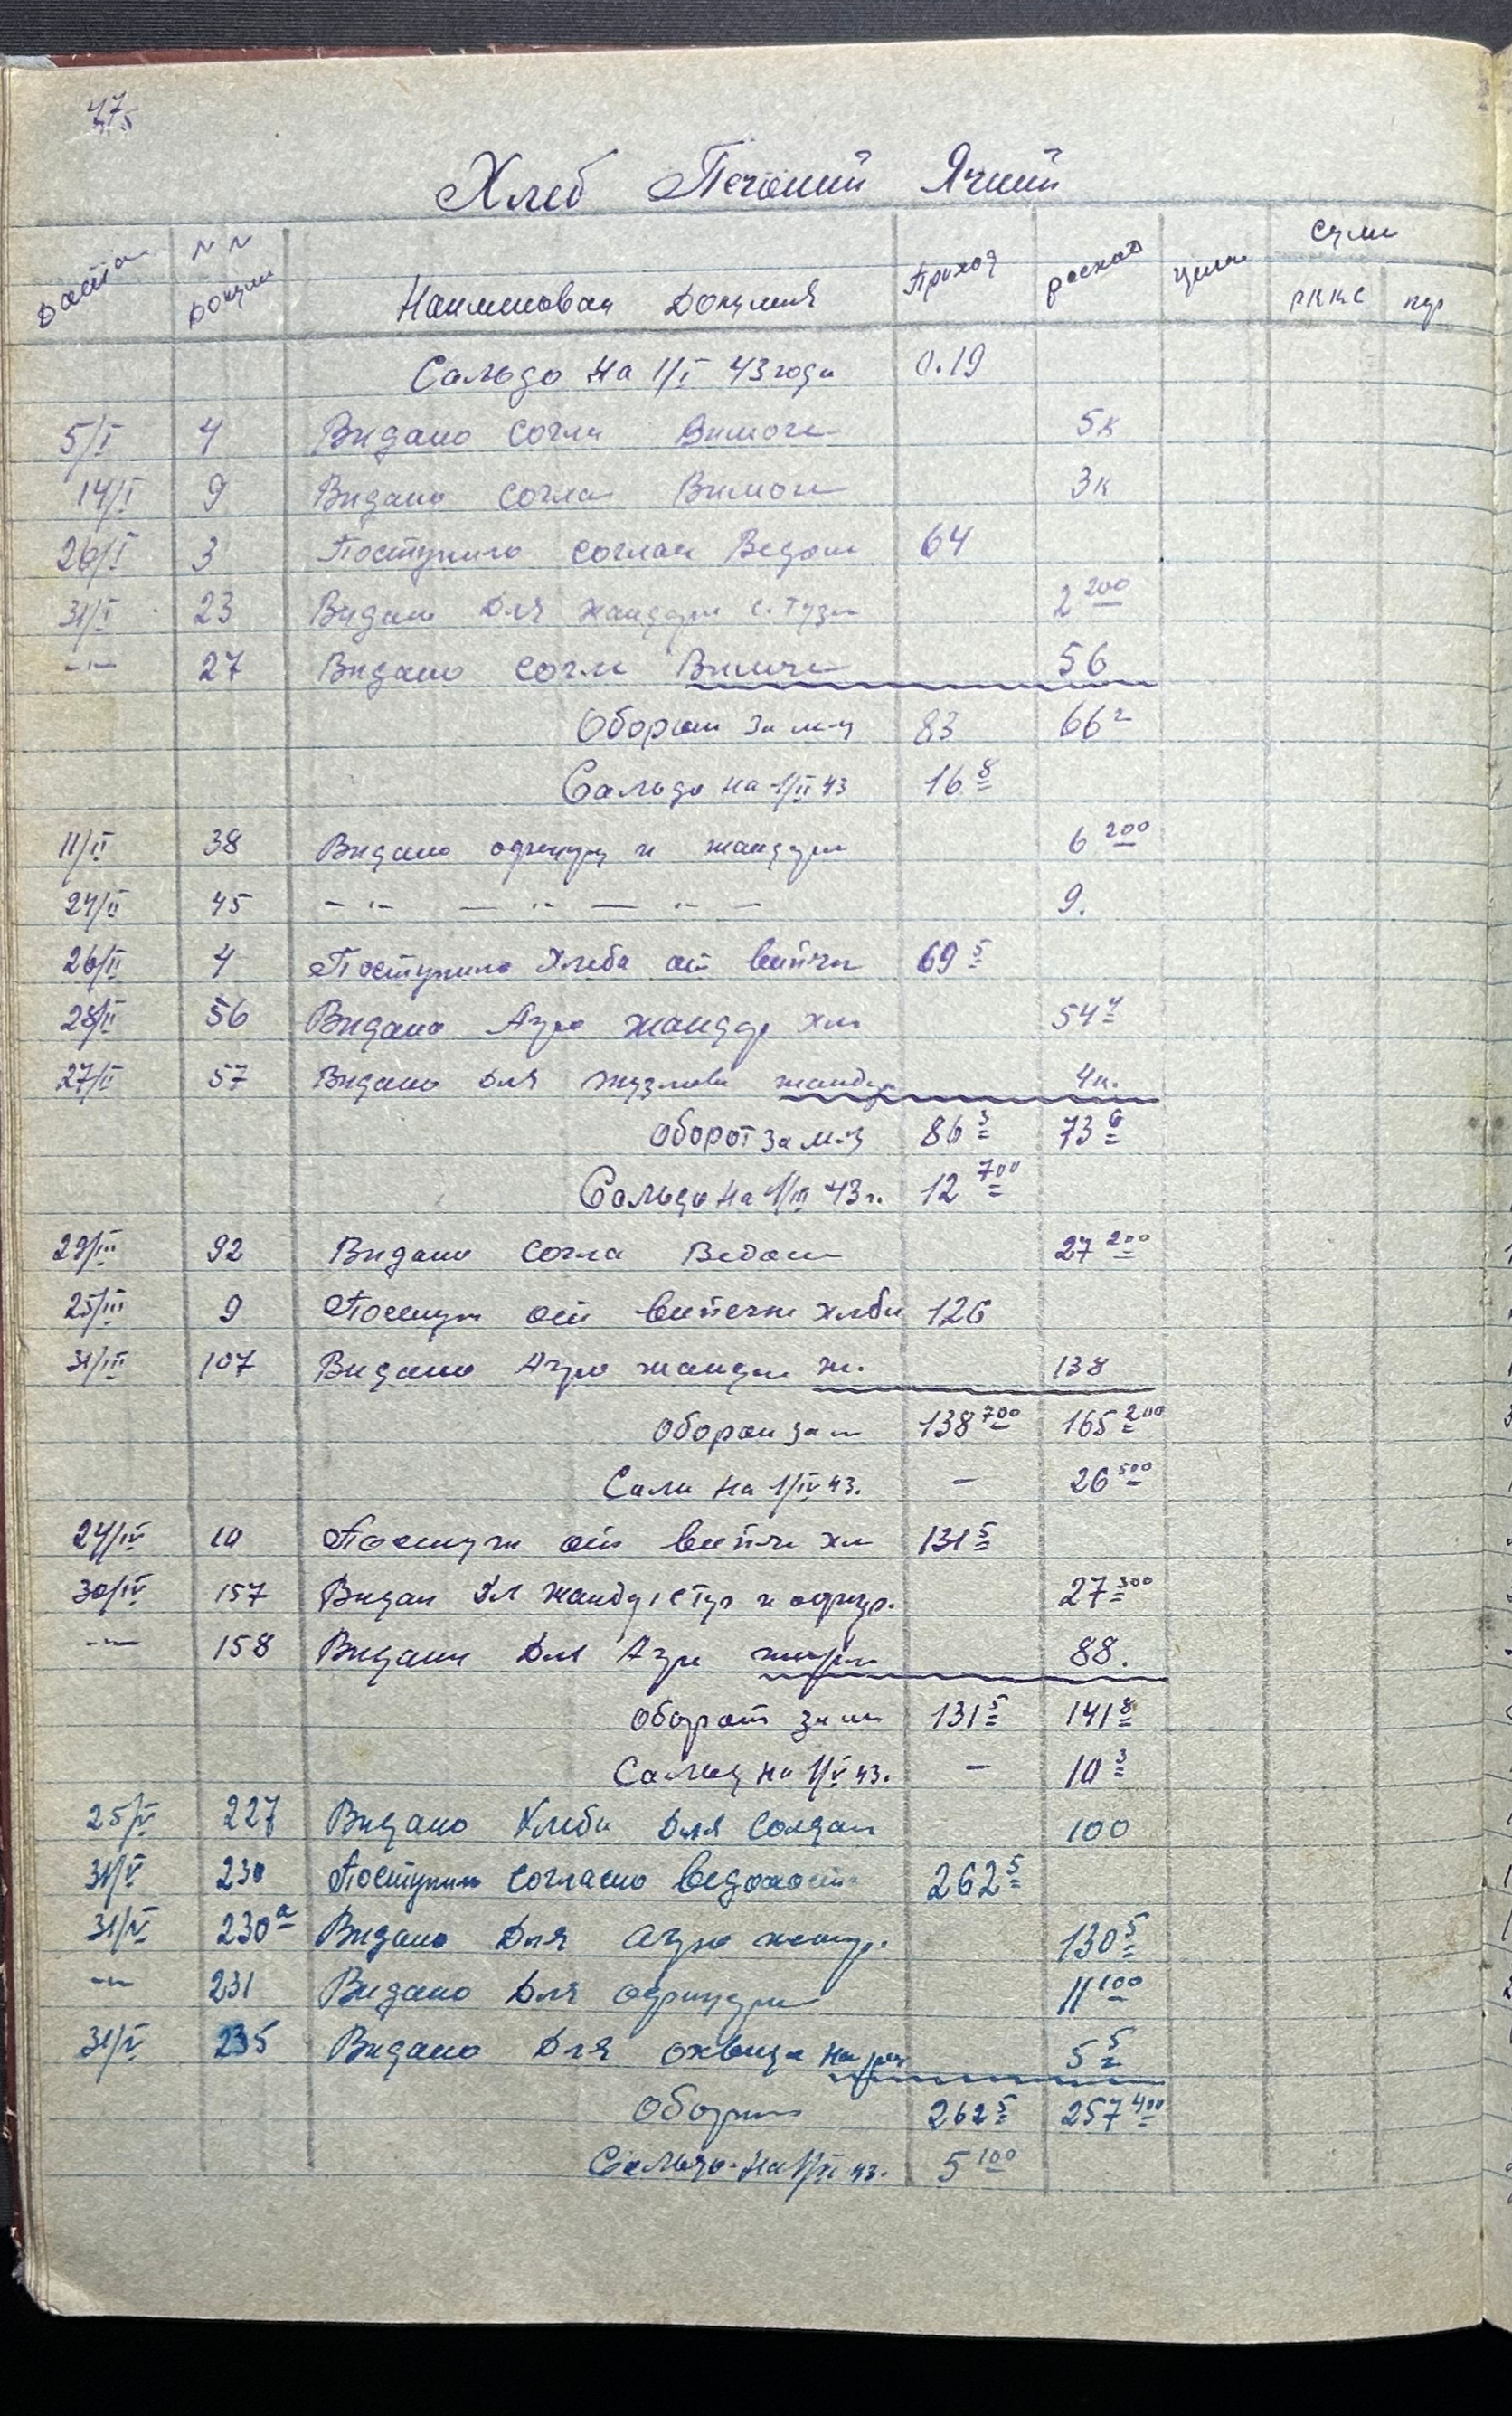 Хлеб Печений Ячний
Дата
№ № Докум
Наименован Докумен
Приход
расход
цена
Сума
РККС
Сальдо на 1/I 43 года 0.19
5/I 4 Видано согла Вимоги 5к
14/I 9 Видано согла Вимоги 3к
26/I 3 Поступило соглас Ведом 64
31/I 23 Видано Для жандарм с. 2 200
-"- 27 Видано согла Вимоги 56
Оборот за м-ц 83 66 2
Сальдо на 1/II 43 16 8
11/II 38 Видано офицер и жандарм 6 200
24/II 45 - "- — "- — "- — 9.
26/II 4 Поступило Хлеба от випечк 69 5
28/II 56 Видано Агро жандар хл 54 4
27/II 57 Видано Для жандар 4к.
Оборот за м-ц 86 3 73 6
Сальдо на 1/III 43 г. 12 700
29/III 92 Видано согла Ведом 27 200
25/III 9 Поступ от випечки хлеба 126
31/III 107 Видано Агро жандар ж. 138
Оборот за м 138 700 165 200
Саль на 1/IV 43. - 26 500
24/IV 10 Поступи от випечк хл 131 5
30/IV 157 Видан Хл жанд и офицр. 27 300
-"- 158 Видани Для Агро 88.
Оборот за м 131 5 141 8
Сальд на 1/V 43. - 10 3
25/V 227 Видано Хлеба Для Солдат 100
31/V 230 Поступило согласно ведомости 262 5
31/V 230а Видано Для Агро жанд. 130 5
-"- 231 Видано Для офицери 11 100
31/V 235 Видано Для 5 5
Оборот 262 5 257 400
Сальдо на 1/VI 43. 5 100